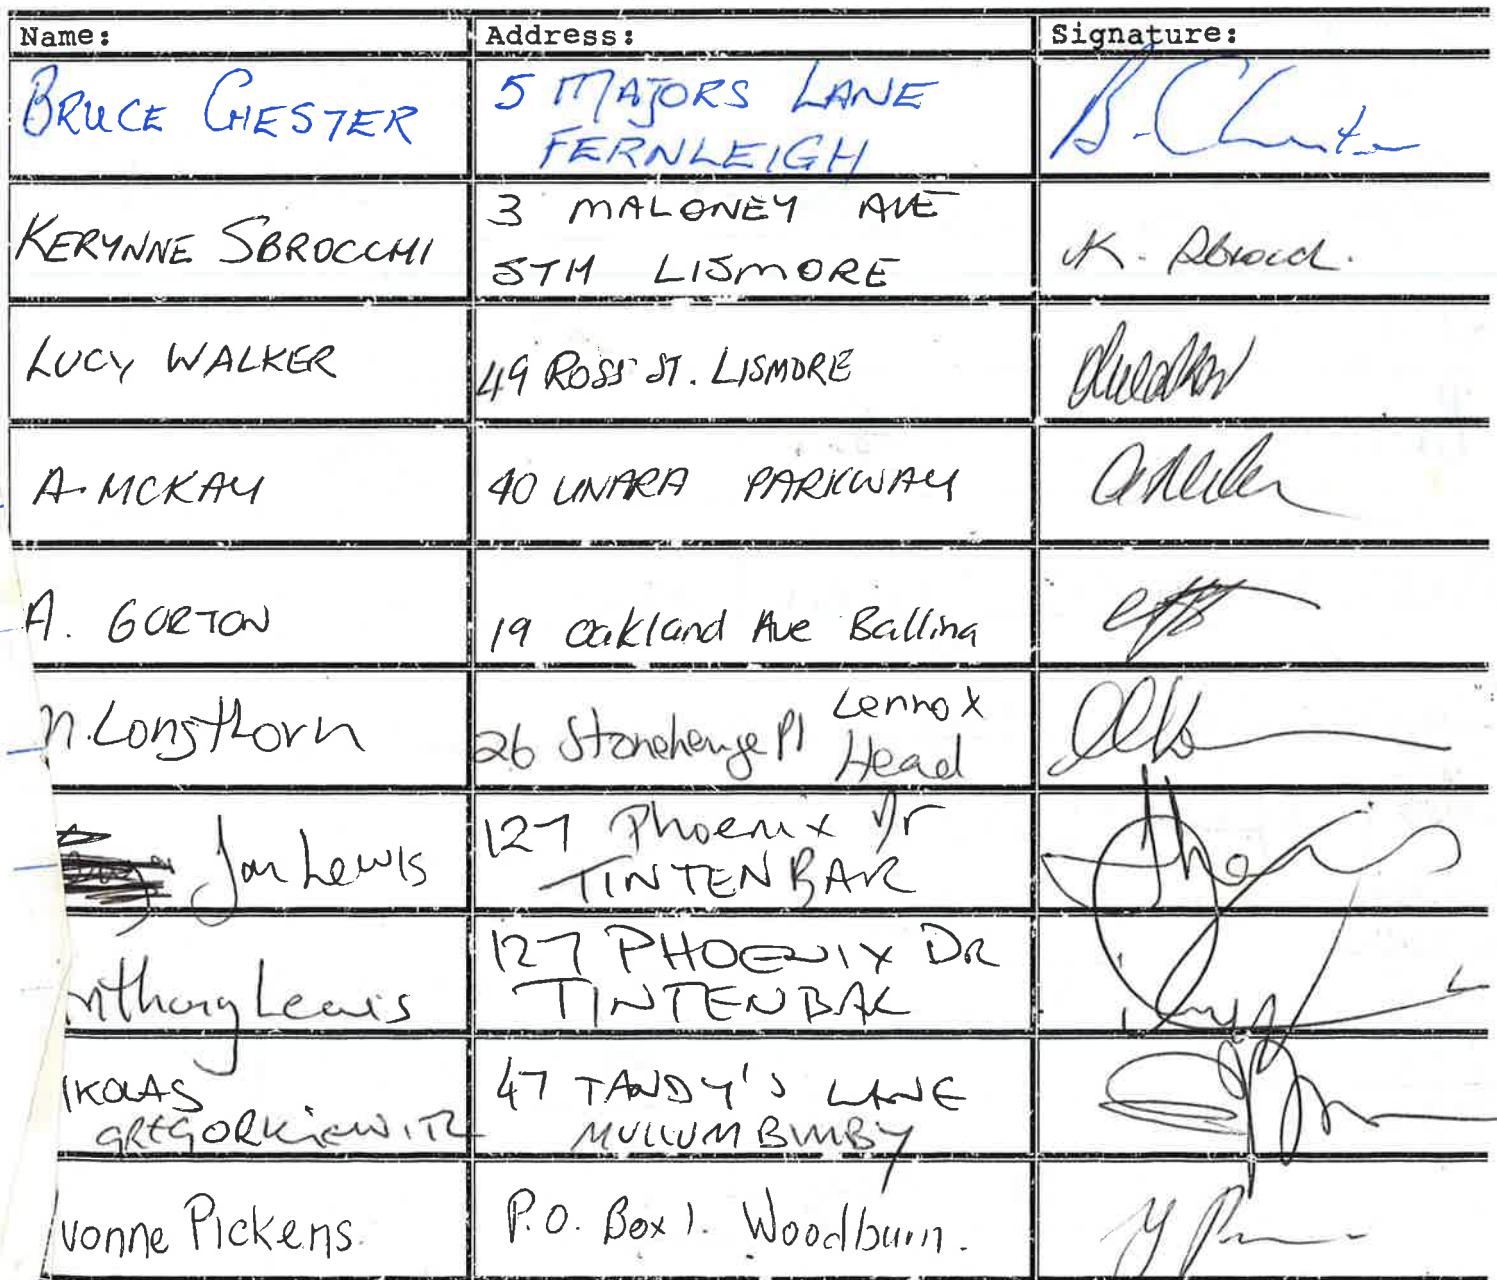 Name: Address: Signature:
BRUCE CHESTER 5 MAJORS LANE
FERNLEIGH
B. Chester
KERYNNE SBROCCHI 3 MALONEY AVE
STH LISMORE
K. Sbrocch.
LUCY WALKER 49 ROSS ST. LISMORE
A. MCKAY 40 UNARA PARKWAY
A. GORTON 19 Oakland Ave Ballina
n. Longthorn 26 Stonehenge Pl Lennox
Head
Jan Lewis 127 Phoenix Dr
TINTENBAR
nthony Lewis 127 PHOENIX DR
TINTENBAR
IKOLAS 47 TANDY'S LANE
GREGORKIEWITZ MULLUMBIMBY
vonne Pickens. P.O. Box 1. Woodburn.